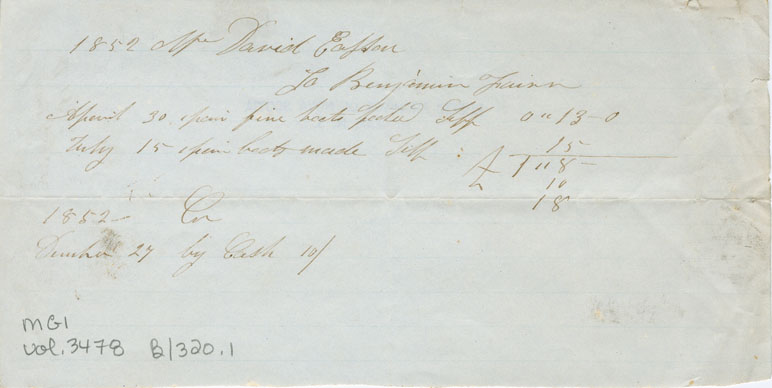 1852 Mr David Easson
To Benjamin Fairn
Aperil 30. pair fine boots footed 0"13-0
July 15 pair boots made 15
£ 1"8-
10
18
1852- Cr
27 by Cash 10/
MG1
vol. 3478 B/320.1